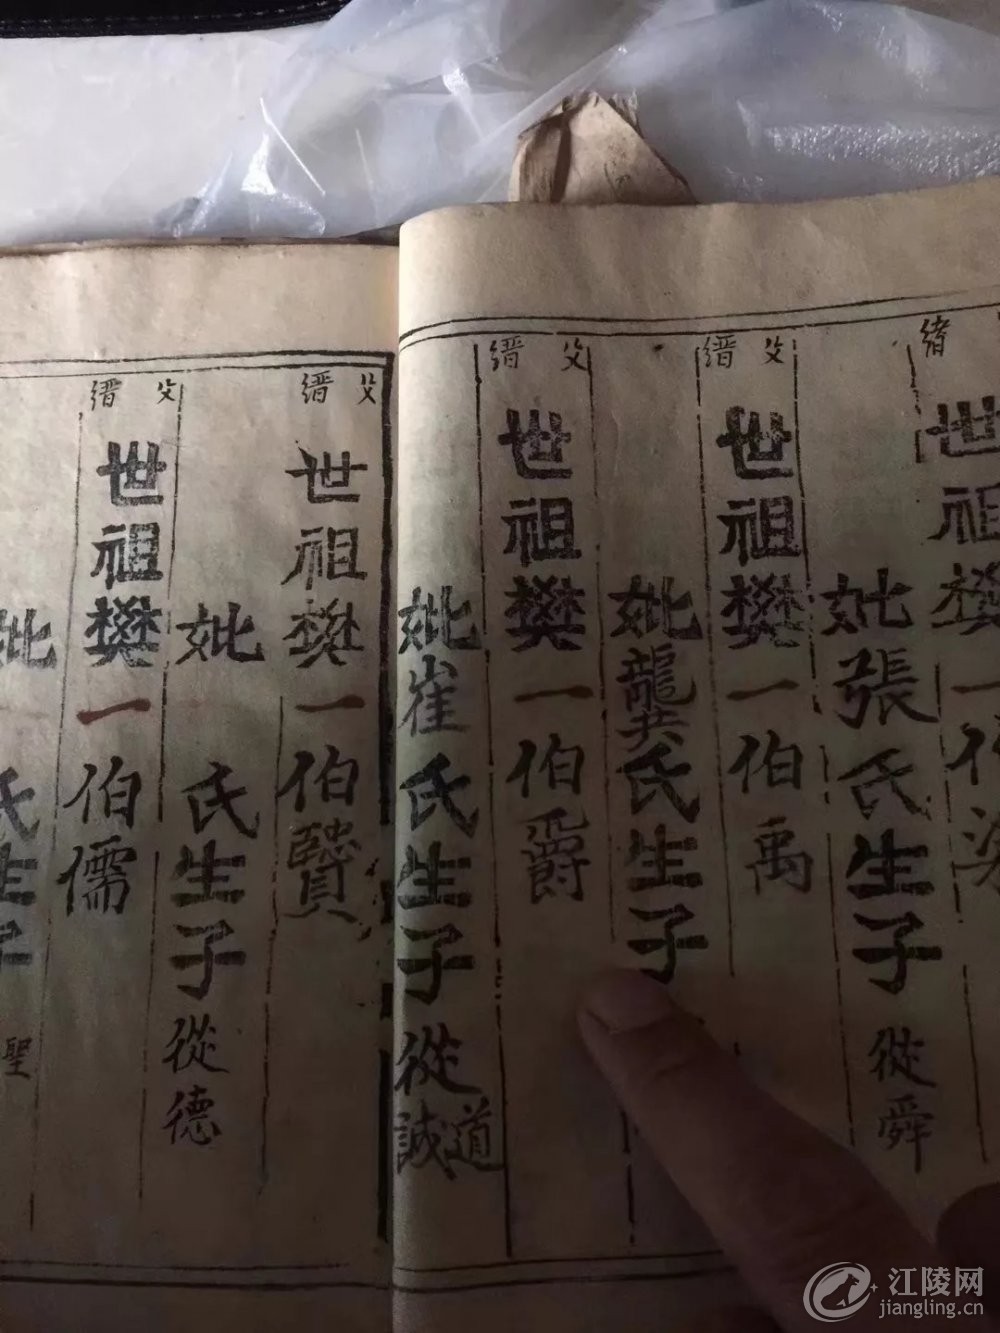 緒
世祖樊一伯染
妣張氏生子從舜
父縉
世祖樊一伯禹
妣龔氏生子
父縉
世祖樊一伯爵
妣崔氏生子從誠道
父縉
世祖樊一伯賢
妣氏生子從德
父縉
世祖樊一伯儒
妣氏生子聖
江陵网
jiangling.cn